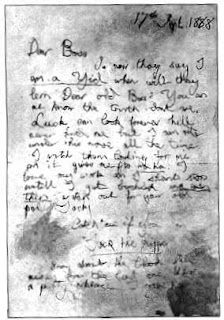 17th Sept 1888
Dear Boss
So now they say I
am a Yid when will they
lern Dear old Boss? You an
me know the truth dont we.
Lusk can look forever hell
never find me but I am rite
under his nose all the time
I watch them looking for me
an it gives me fits ha ha I
love my work an I shant stop
untill I get buckled and even
then watch out for your old
pal Jacky
Catch me if you
Jack the Ripper
Sorry about the blood
from the last
a pretty necklace